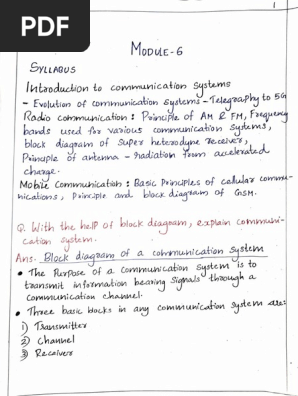 PDF
1
MODULE-6
SYLLABUS
Introduction to communication systems
- Evolution of communication systems - Telegraphy to 5G
Radio communication : Principle of AM & FM, Frequency
bands used for various communication systems,
block diagram of super heterodyne receiver,
Principle of antenna - radiation from accelerated
charge.
Mobile Communication : Basic Principles of cellular commu-
nications, principle and block diagram of GSM.
Q. With the help of block diagram, explain communi-
cation system.
Ans. Block diagram of a communication system
• The Purpose of a communication system is to
transmit information bearing signals through a
communication channel.
• Three basic blocks in any communication system are:
1) Transmitter
2) Channel
3) Receiver